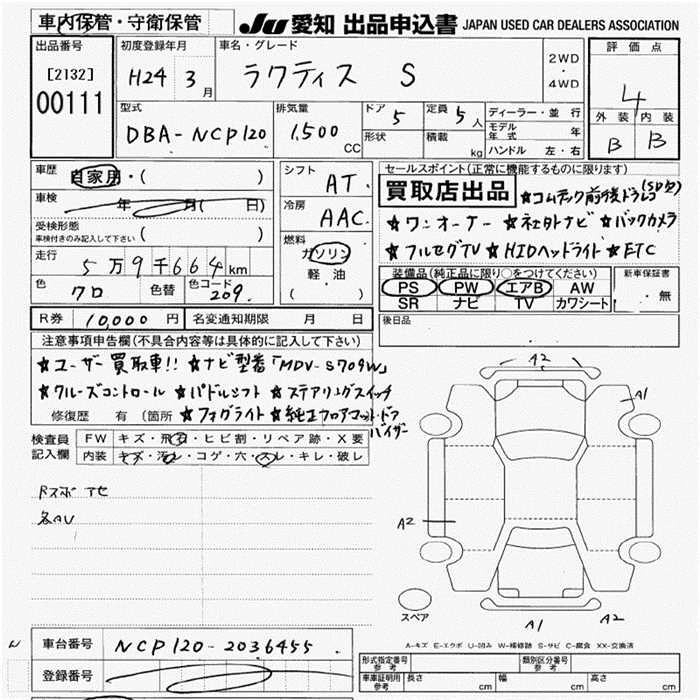 車内保管・守衛保管
JU 愛知 出品申込書 JAPAN USED CAR DEALERS ASSOCIATION
出品番号
[2132]
00111
初度登録年月
H24 3月
車名・グレード
ラクティス S
2WD
・
4WD
評価点
4
外装 内装
B B
型式
DBA-NCP120
排気量
1,500 CC
ドア 5
定員 5人
形状
積載 kg
ディーラー・並行
モデル年式 年
ハンドル 左・右
車歴
自家用・( )
車検
年 月( 日)
受検形態
車検付きのみ記入して下さい ( )
走行
5万9千664km
色 クロ 色替 色コード 209.
シフト
AT.
冷房
AAC.
燃料
ガソリン
軽油
( )
セールスポイント(正常に機能するものに限ります)
買取店出品 ★コムテック前後ドラレコ
★ワンオーナー ★社外ナビ ★バックカメラ
★フルセグTV ★HIDヘッドライト ★ETC
装備品(純正品に限り○をつけてください)
PS PW エアB AW
SR ナビ TV カワシート
新車保証書
・無
後日品
R券 10,000円 名変通知期限 月 日
注意事項申告欄(不具合内容等は具体的に記入して下さい)
★ユーザー買取車!! ★ナビ型番「MDV-S709W」
★クルーズコントロール ★パドルシフト ★ステアリングスイッチ
修復歴 有 (箇所 ★フォグライト ★純正フロアマット・ドア
バイザー
検査員
記入欄
FW キズ・飛石・ヒビ割・リペア跡・X要
内装 キズ・汚レ・コゲ・穴・スレ・キレ・破レ
A2
A1
A2
A1
A2
スペア
A-キズ E-エクボ U-凹み W-補修跡 S-サビ C-腐食 XX-交換済
車台番号 NCP120-2036455
登録番号
形式指定番号
参考
類別区分番号
参考
車庫証明用
参考
長さ cm 幅 cm 高さ cm